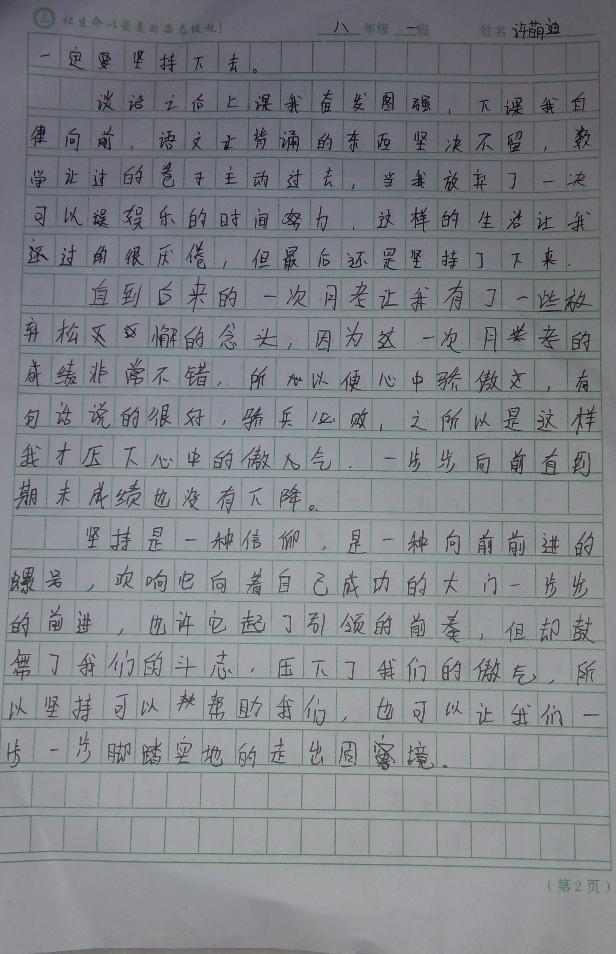 让生命以最美的姿态绽放！ 八 年级 一 班 姓名 许萌迪
一定要坚持下去。
谈话之后上课我奋发图强，下课我自
律向前，语文让背诵的东西坚决不留，数
学让过的卷子主动过去，当我放弃了一决
可以误娱乐的时间努力，这样的生活让我
还过角很厌倦，但最后还是坚持了下来.
直到后来的一次月考让我有了一些放
弃松懈的念头，因为这一次月考的
成绩非常不错，所以便心中骄傲，有
句话说的很好，骄兵必败，之所以是这样
我才压下心中的傲气.一步步向前直到
期末成绩也没有下降。
坚持是一种信仰，是一种向前前进的
号，吹响它向着自己成功的大门一步步
的前进，也许它起了引领的前奏，但却鼓
舞了我们的斗志，压下了我们的傲气，所
以坚持可以帮助我们，也可以让我们一
步一步脚踏实地的走出困境。
（第2页）